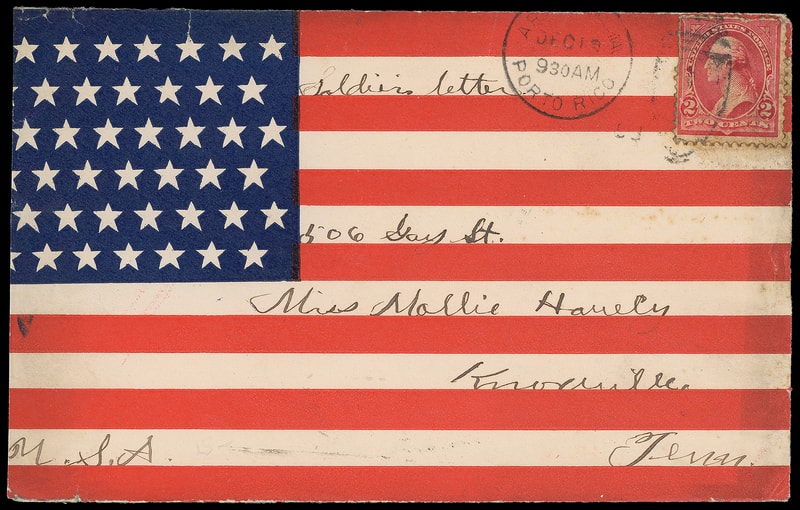 Soldiers letter
DEC 15
930AM
PORTO RICO
UNITED STATES POSTAGE
2 2
TWO CENTS
506 Gay St.
Miss Mollie
Knoxville.
U.S.A. Tenn.